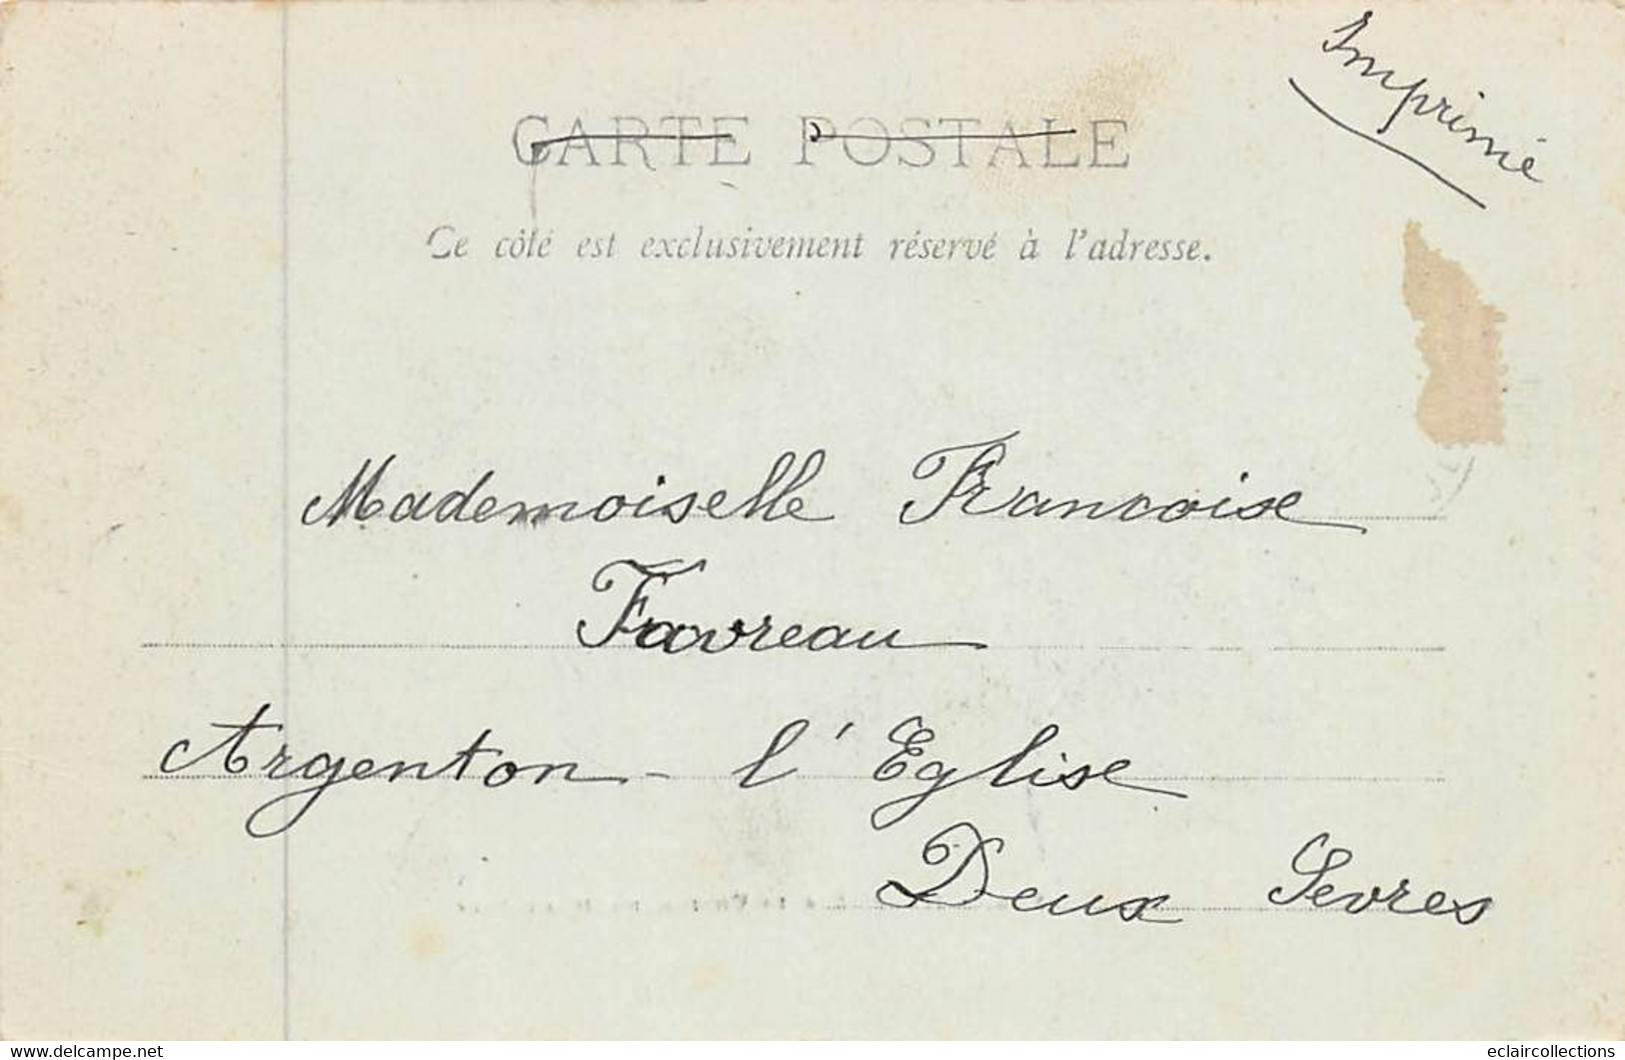 Imprimé
CARTE POSTALE
Ce côté est exclusivement réservé à l'adresse.
Mademoiselle Francoise
Favreau
Argenton - l'Eglise
Deux Sevres
www.delcampe.net
eclaircollections